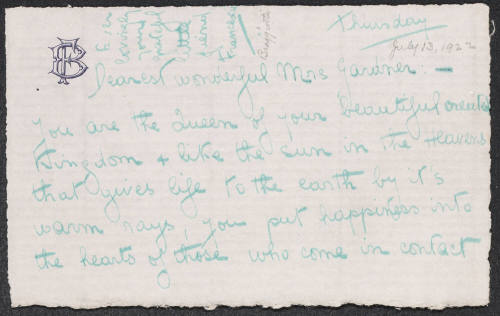 Thursday
July 13, 1922
Dearest wonderful Mrs Gardner: —
You are the Queen of your beautiful created
Kingdom & like the sun in the Heavens
that gives life to the earth by it's
warm rays, you put happiness into
the hearts of those who come in contact
Ever
lovingly
your
grateful
little
friend
Francesca